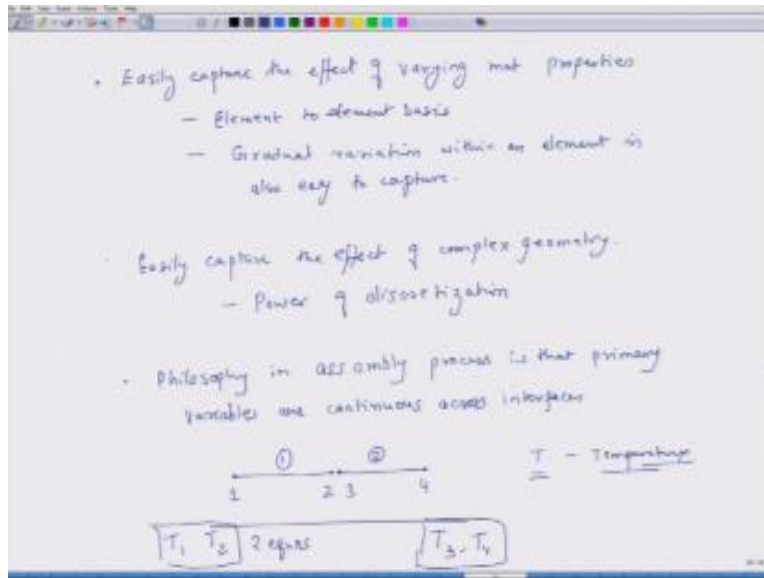 . Easily capture the effect of varying mat properties
– Element to element basis
– Gradual variation within an element is
also easy to capture.
. Easily capture the effect of complex geometry.
– Power of discretization
. Philosophy in assembly process is that primary
variables are continuous across interfaces
① ②
T – Temperature
1 2 3 4
T₁ T₂ 2 eqns T₃ – T₄